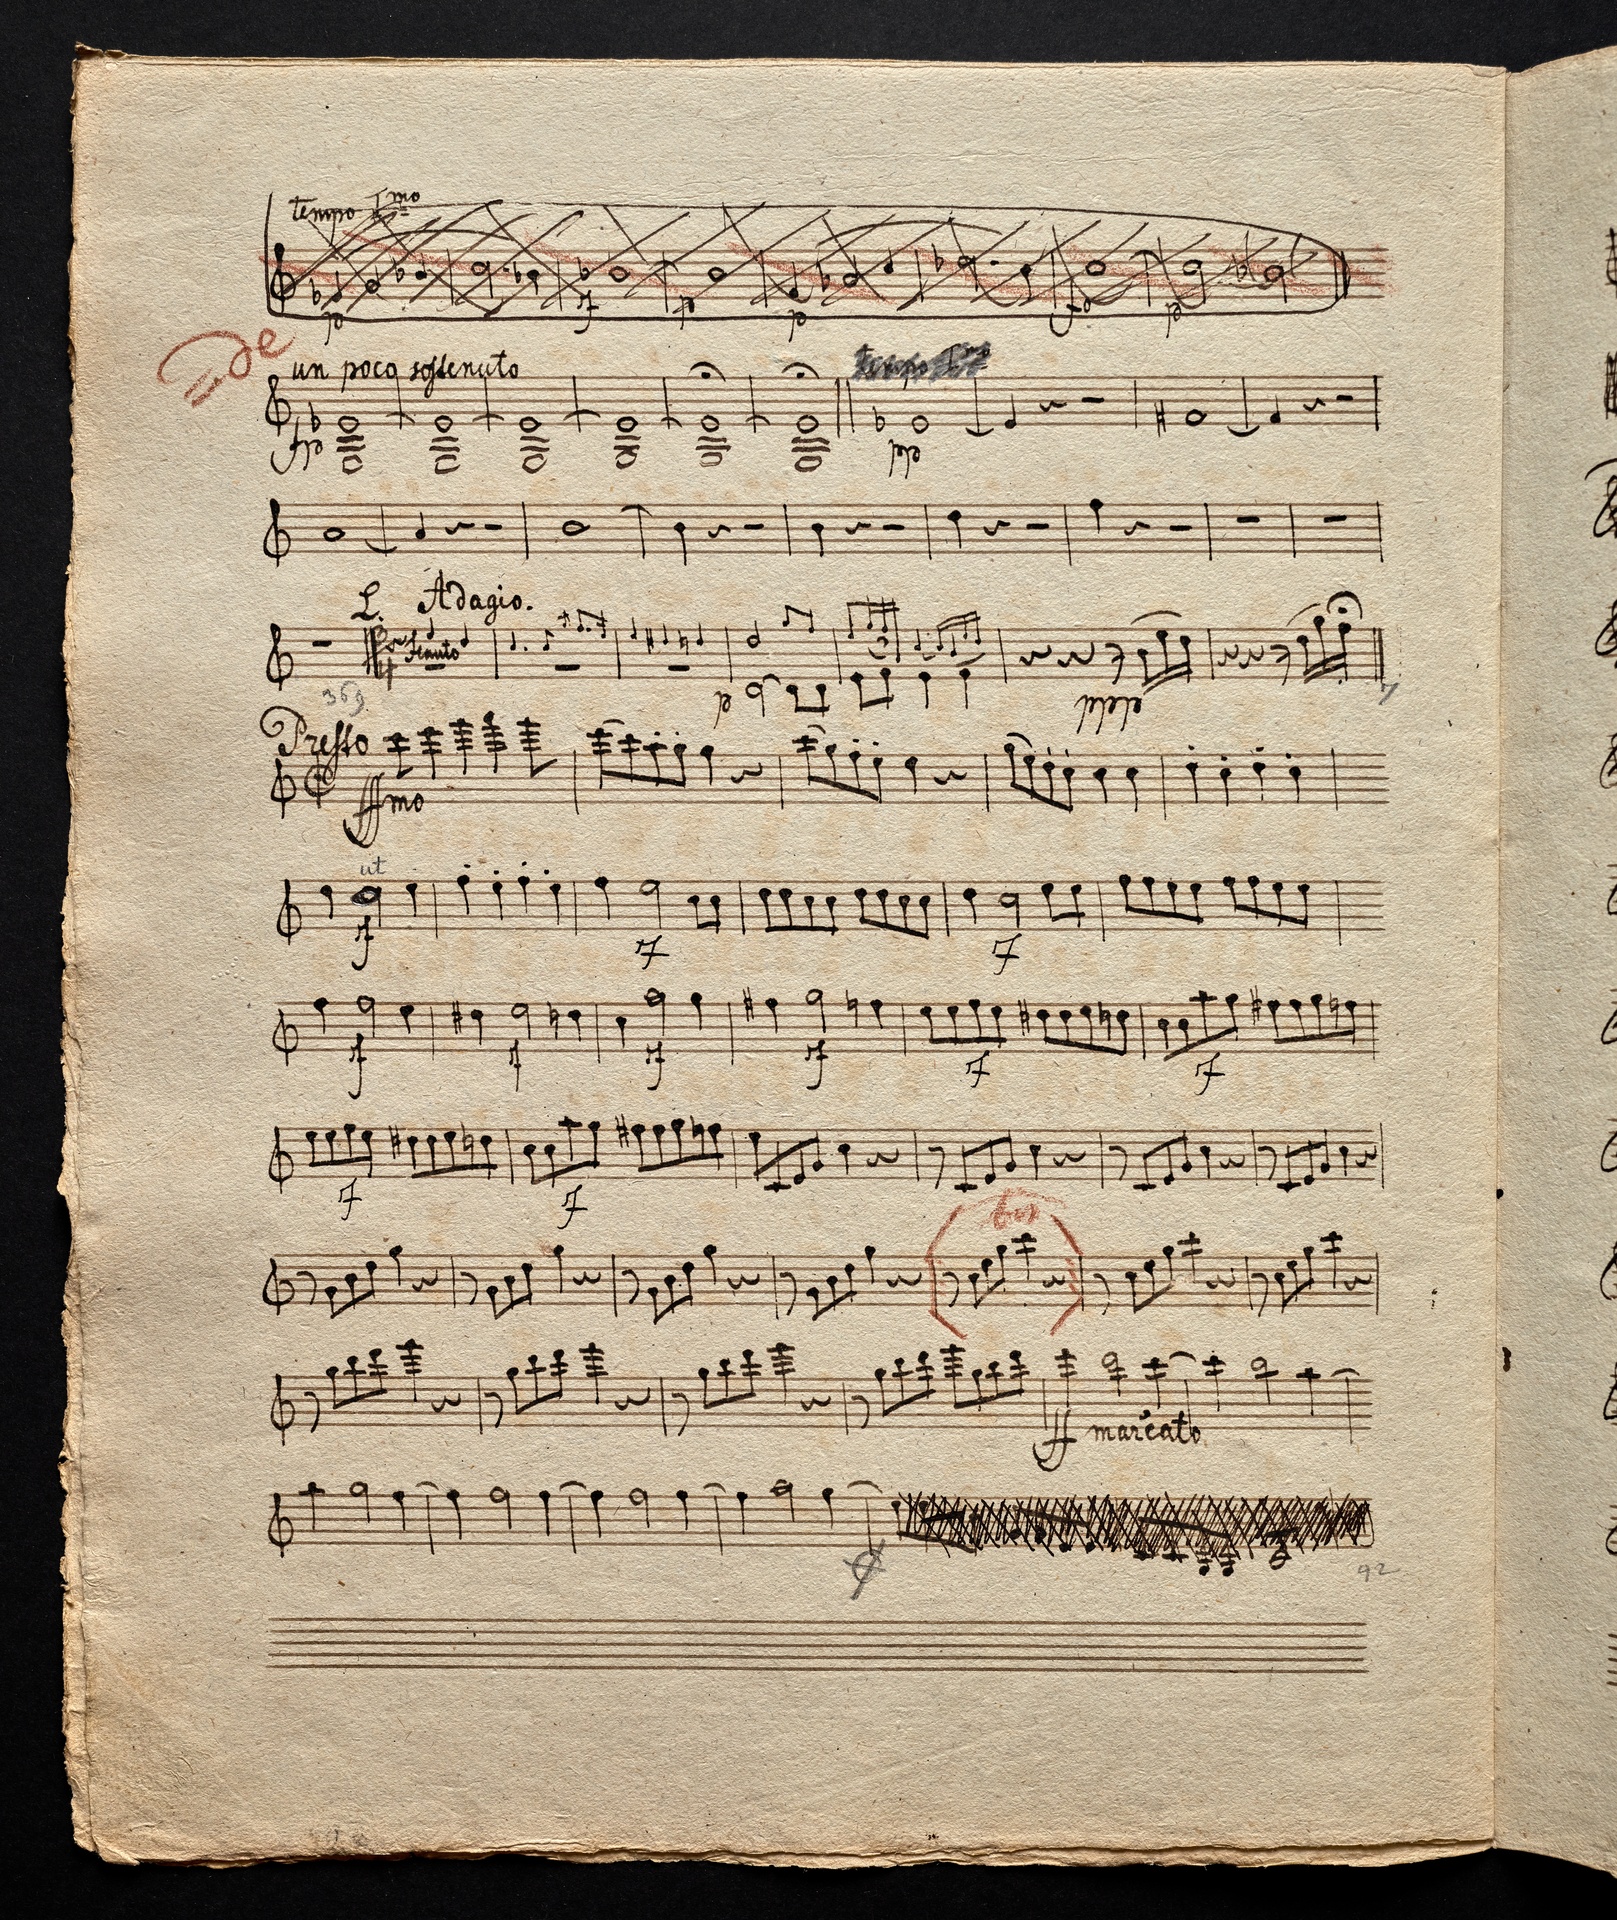 tempo Imo
p f p p f p
de
un poco sostenuto tempo Imo
fp pp
L. Adagio.
tenuto
p ppp
369
Presto
ffmo
ut
f f f
f f f f f f
f f
bis
ff marcato
92